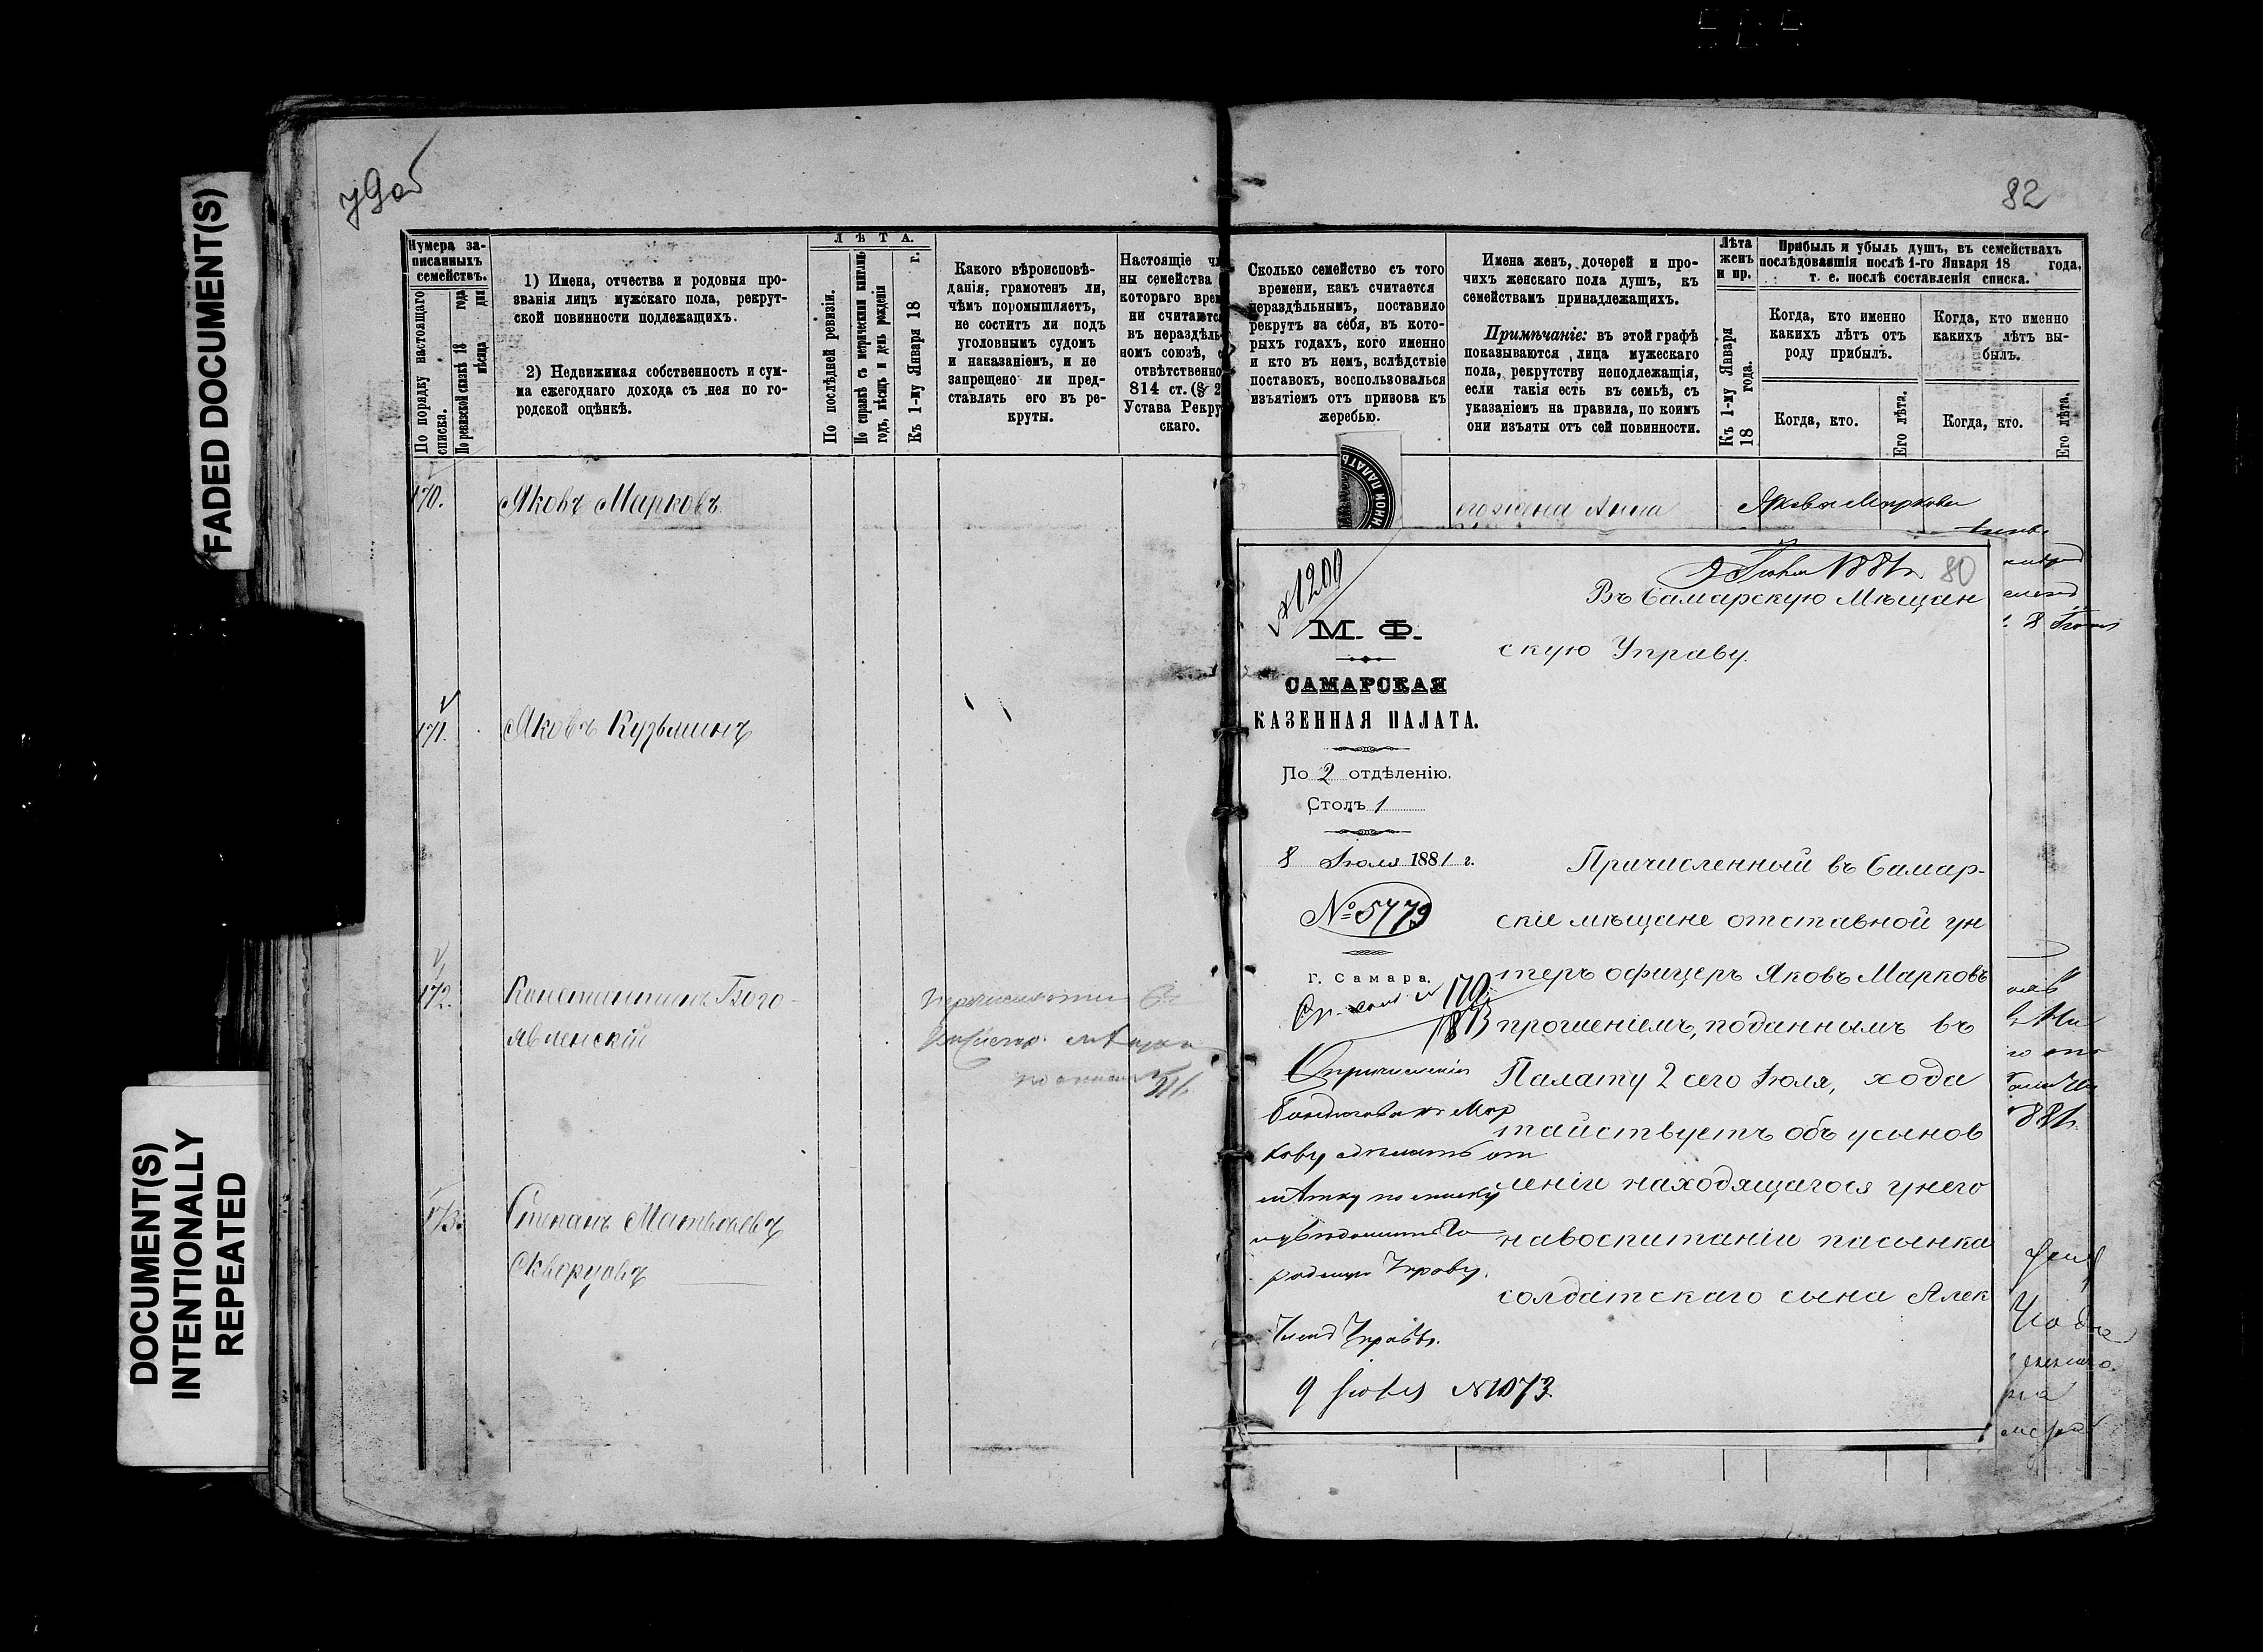 FADED DOCUMENT(S)
DOCUMENT(S)
INTENTIONALLY
REPEATED
79об
82
Нумера за-
писанныхъ
семействъ.
По порядку настоящаго
списка.
По ревизской сказкѣ 18 года
мѣсяца дня
1) Имена, отчества и родовыя про-
званія лицъ мужскаго пола, рекрут-
ской повинности подлежащихъ.
2) Недвижимая собственность и сум-
ма ежегоднаго дохода съ нея по го-
родской оцѣнкѣ.
ЛѢТА.
По послѣдней ревизіи.
По справкѣ съ метрическими книгами
годъ, мѣсяцъ и день рожденія
Къ 1-му Января 18 г.
Какого вѣроисповѣ-
данія, грамотенъ ли,
чѣмъ поромышляетъ,
не соститъ ли подъ
уголовнымъ судомъ
и наказаніемъ, и не
запрещено ли пред-
ставлять его въ ре-
круты.
Настоящіе чл
ны семейства
котораго врем
ни считаются
въ нераздѣль
номъ союзѣ, с
отвѣтственно
814 ст. (§ 2
Устава Рекру
скаго.
Сколько семейство съ того
времени, какъ считается
нераздѣльнымъ, поставило
рекрутъ за себя, въ кото-
рыхъ годахъ, кого именно
и кто въ немъ, вслѣдствіе
поставокъ, воспользовался
изъятіемъ отъ призова къ
жеребью.
Имена женъ, дочерей и про-
чихъ женскаго пола душъ, къ
семействамъ принадлежащихъ.
Примѣчаніе: въ этой графѣ
показываются лица мужескаго
пола, рекрутству неподлежащія,
если такія есть въ семьѣ, съ
указаніемъ на правила, по коимъ
они изъяты отъ сей повинности.
Лѣта
женъ
и пр.
Къ 1-му Января
18 года.
Прибыль и убыль душъ, въ семействахъ
послѣдовавшія послѣ 1-го Января 18 года,
т. е. послѣ составленія списка.
Когда, кто именно
какихъ лѣтъ отъ
роду прибылъ.
Когда, кто именно
какихъ лѣтъ вы-
былъ.
Когда, кто.
Его лѣта.
Когда, кто.
Его лѣта.
170. Яковъ Марковъ
его жена Анна
Яковъ Марковъ
171. Яковъ Кузьминъ
172. Константинъ Бого-
явленскій
173. Степанъ Матвѣевъ
Скворцовъ
№ 1209
9 Іюля 1881 г.
80
Въ Самарскую Мѣщан
скую Управу.
М. Ф.
САМАРСКАЯ
КАЗЕННАЯ ПАЛАТА.
По 2 отдѣленію.
Столъ 1
8 Іюля 1881 г.
№ 5779
г. Самара.
Причисленный въ Самар-
скіе мѣщане отставной ун
теръ офицеръ Яковъ Марковъ
прошеніемъ, поданнымъ въ
Палату 2 сего Іюля, хода
тайствуетъ объ усынов
леніи находящагося у него
на воспитаніи пасынка
солдатскаго сына Алек
170
1873
О причисленіи
къ Мар
кову сдѣлать от
мѣтку по списку
Управу.
Членъ Управы
9 Іюля № 1073